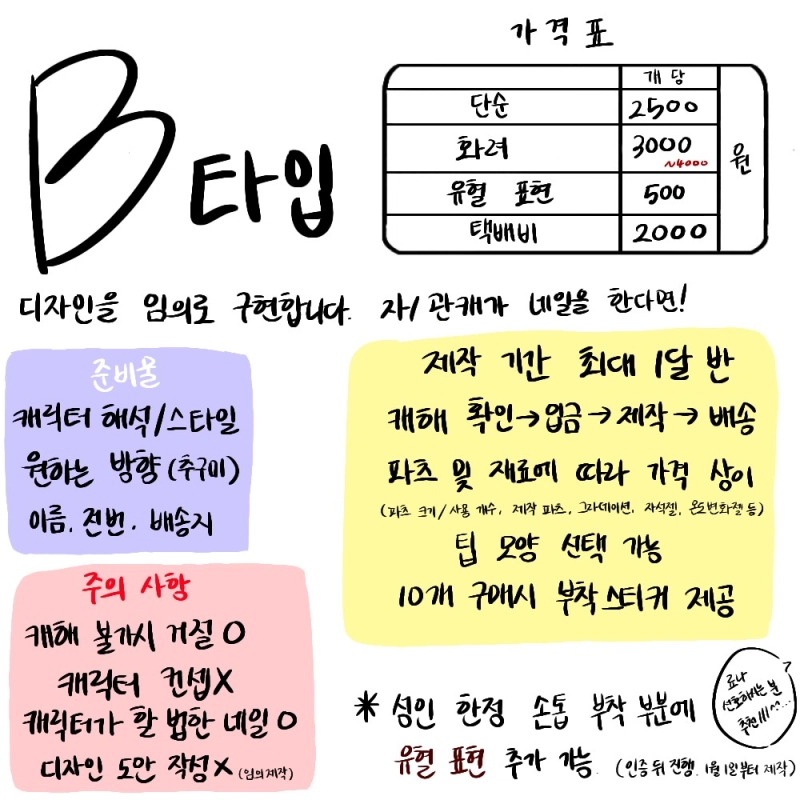 가격표
개당
단순 2500
화려 3000
~4000
유혈 표현 500
택배비 2000
원
B타입
디자인을 임의로 구현합니다. 자/관캐가 네일을 한다면!
준비물
캐릭터 해석/스타일
원하는 방향 (추구미)
이름. 전번. 배송지
제작 기간 최대 1달 반
캐해 확인→입금→제작→배송
파츠 및 재료에 따라 가격 상이
(파츠 크기/사용 개수, 제작 파츠, 그라데이션, 자석젤, 온도변화젤 등)
팁 모양 선택 가능
10개 구매시 부착스티커 제공
주의 사항
캐해 불가시 거절 O
캐릭터 컨셉X
캐릭터가 할 법한 네일 O
디자인 도안 작성X (임의제작)
* 성인 한정 손톱 부착 부분에
유혈 표현 추가 가능. (인증 뒤 진행. 1월 1일부터 제작)
선호하시는 분
추천!!!